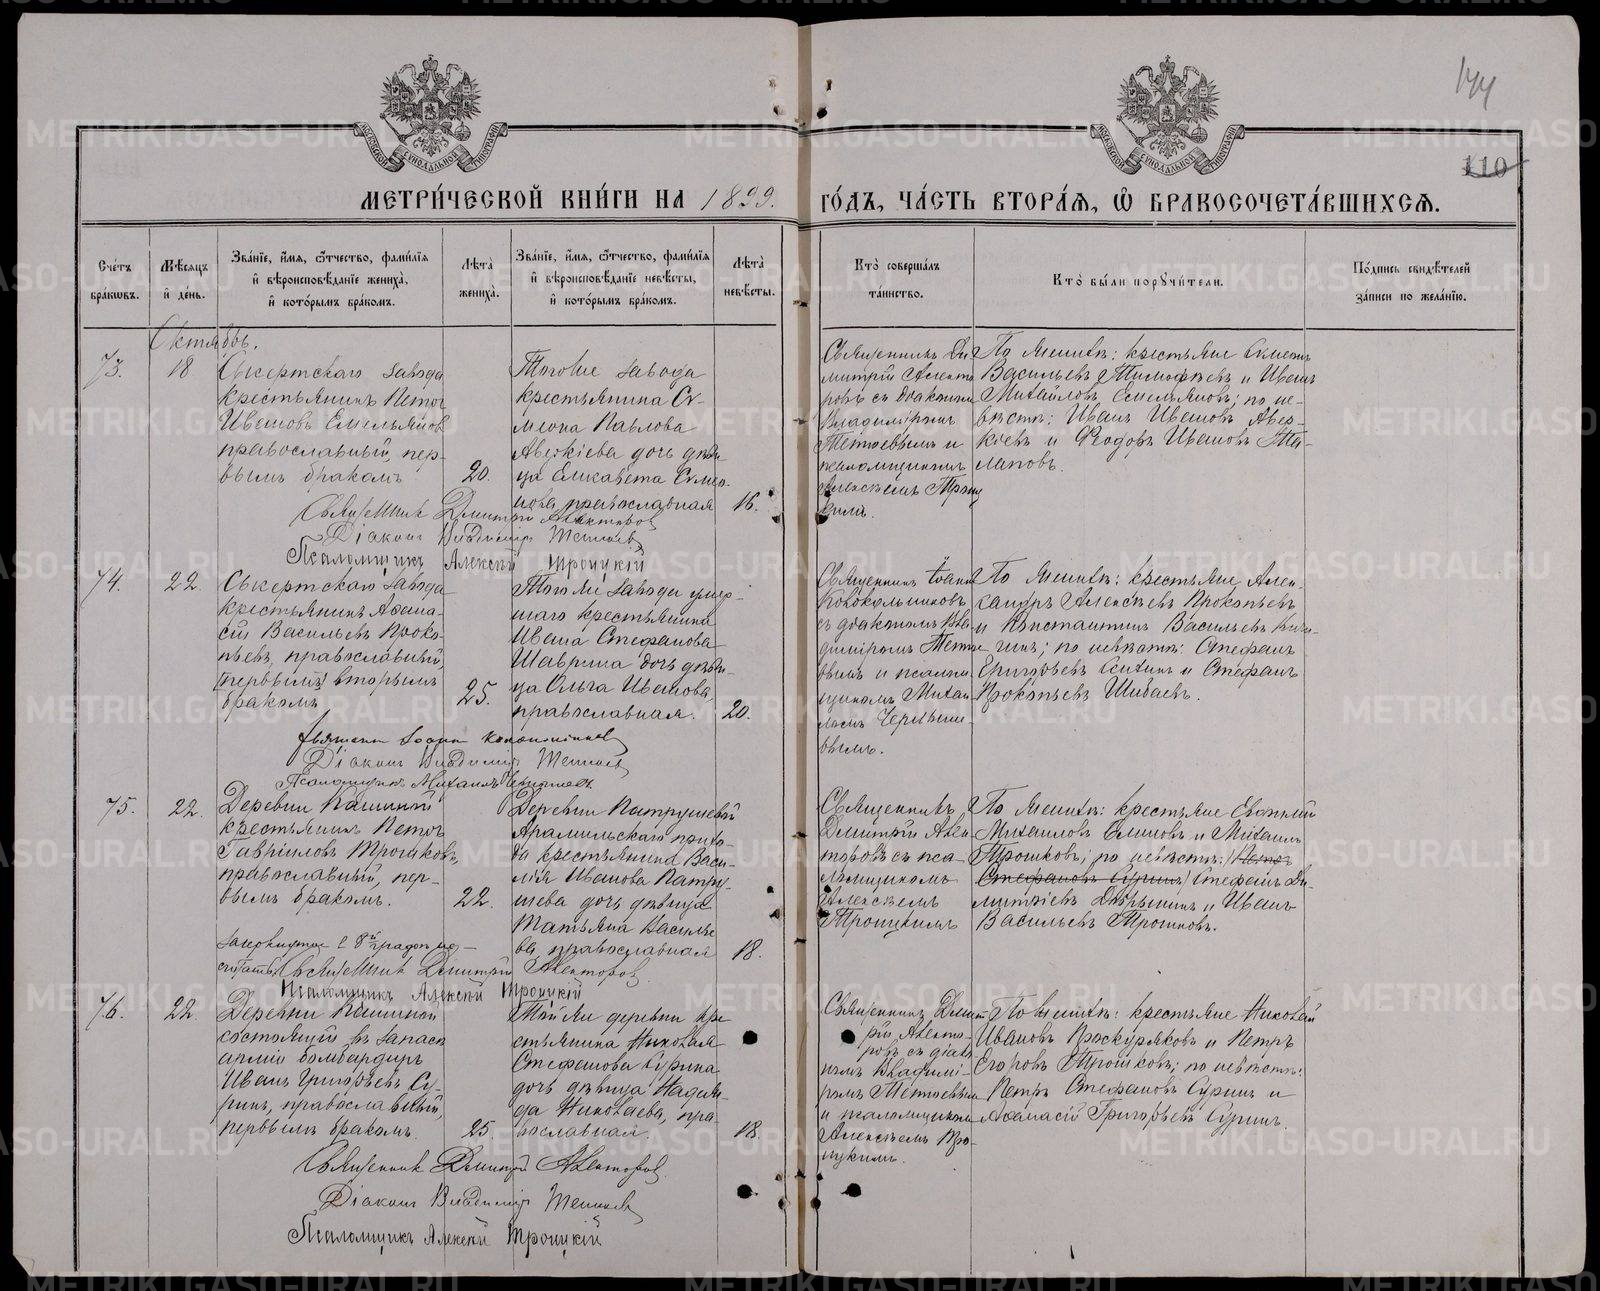 144
110
МЕТРИ́ЧЕСКОЙ КНИ́ГИ НА 1899. ГО́ДЪ, ЧА́СТЬ ВТОРА́Я, Ѡ҆ БРАКОСОЧЕТА́ВШИХСЯ.
Сче́тъ бра́ковъ.
Мѣ́сяцъ и҆ де́нь.
Зва́нїе, и҆́мя, ѻ҆́тчество, фами́лїя и҆ вѣроисповѣ́данїе жениха̀, и҆ кото́рымъ бра́комъ.
Лѣта̀ жениха̀.
Зва́нїе, и҆́мя, ѻ҆́тчество, фами́лїя и҆ вѣроисповѣ́данїе невѣ́сты, и҆ кото́рымъ бра́комъ.
Лѣта̀ невѣ́сты.
Кто̀ соверша́лъ та́инство.
Кто̀ бы́ли поручи́тели.
По́дпись свидѣ́телей за́писи по жела́нїю.
Октябрь.
73.
18
Сысертскаго завода
крестьянинъ Петръ
Ивановъ Емельяновъ
православный, пер-
вымъ бракомъ
20.
Тогоже завода
крестьянина Си-
меона Павлова
Аверкіева дочь дѣви-
ца Елисавета Симео-
нова, православная
16.
Священникъ Ди-
митрій Авекто-
ровъ съ діакономъ
Владиміромъ
Тетюевымъ и
псаломщикомъ
Алексѣемъ Троиц-
кимъ.
По женихѣ: крестьяне
Васильевъ Тимофѣевъ и Иванъ
Михайловъ Емельяновъ; по не-
вѣстѣ: Иванъ Ивановъ Авер-
кіевъ и Ѳеодоръ Ивановъ
Священникъ Димитрій Авекторовъ
Діаконъ Владиміръ
Псаломщикъ Алексѣй Троицкій
74.
22.
Сысертскаго завода
крестьянинъ Аѳана-
сій Васильевъ Проко-
пьевъ, православный,
(первымъ) вторымъ
бракомъ
25.
Того же завода умер-
шаго крестьянина
Ивана Стефанова
Шаврина дочь дѣви-
ца Ольга Иванова,
православная.
20.
Священникъ Іоаннъ
Колокольниковъ
съ діакономъ Вла-
диміромъ Тетюе-
вымъ и псалом-
щикомъ Михаи-
ломъ
вымъ.
По женихѣ: крестьяне Алек-
сандръ Алексѣевъ Прокопьевъ
и Константинъ Васильевъ
по невѣстѣ: Стефанъ
Григорьевъ и Стефанъ
Прокопьевъ Шибаевъ.
Священникъ Іоаннъ Колокольниковъ
Діаконъ Владиміръ
Псаломщикъ Михаилъ
75.
22.
Деревни Кашиной
крестьянинъ Петръ
Гавріиловъ Трошковъ,
православный, пер-
вымъ бракомъ.
22.
Деревни Патрушевой
Арамильскаго прихо-
да крестьянина Васи-
лія Ивановa Патру-
шева дочь дѣвица
Татьяна Василье-
ва, православная
18.
Священникъ
Димитрій Авек-
торовъ съ пса-
ломщикомъ
Алексѣемъ
Троицкимъ
По женихѣ: крестьяне Евѳимій
Михаиловъ и Михаилъ
Трошковъ; по невѣстѣ: (Петръ
Стефановъ Суринъ) Стефанъ Ди-
митріевъ и Иванъ
Васильевъ Трошковъ.
Священникъ Димитрій Авекторовъ
Псаломщикъ Алексѣй Троицкій
76.
22.
Деревни Кашиной
состоящій въ запасѣ
арміи бомбардиръ
Иванъ Григорьевъ Су-
ринъ, православный,
первымъ бракомъ.
25.
Той же деревни кре-
стьянина Николая
Стефанова Сурина
дочь дѣвица Надеж-
да Николаева, пра-
вославная.
18.
Священникъ Димит-
рій Авекто-
ровъ съ діако-
номъ Владимі-
ромъ Тетюевымъ
и псаломщикомъ
Алексѣемъ Тро-
ицкимъ.
По женихѣ: крестьяне Николай
Ивановъ Проскуряковъ и Петръ
Егоровъ Трошковъ; по невѣстѣ:
Петръ Стефановъ Суринъ и
Аѳанасій Григорьевъ Суринъ.
Священникъ Димитрій Авекторовъ
Діаконъ Владиміръ
Псаломщикъ Алексѣй Троицкій
METRIKI.GASO-URAL.RU